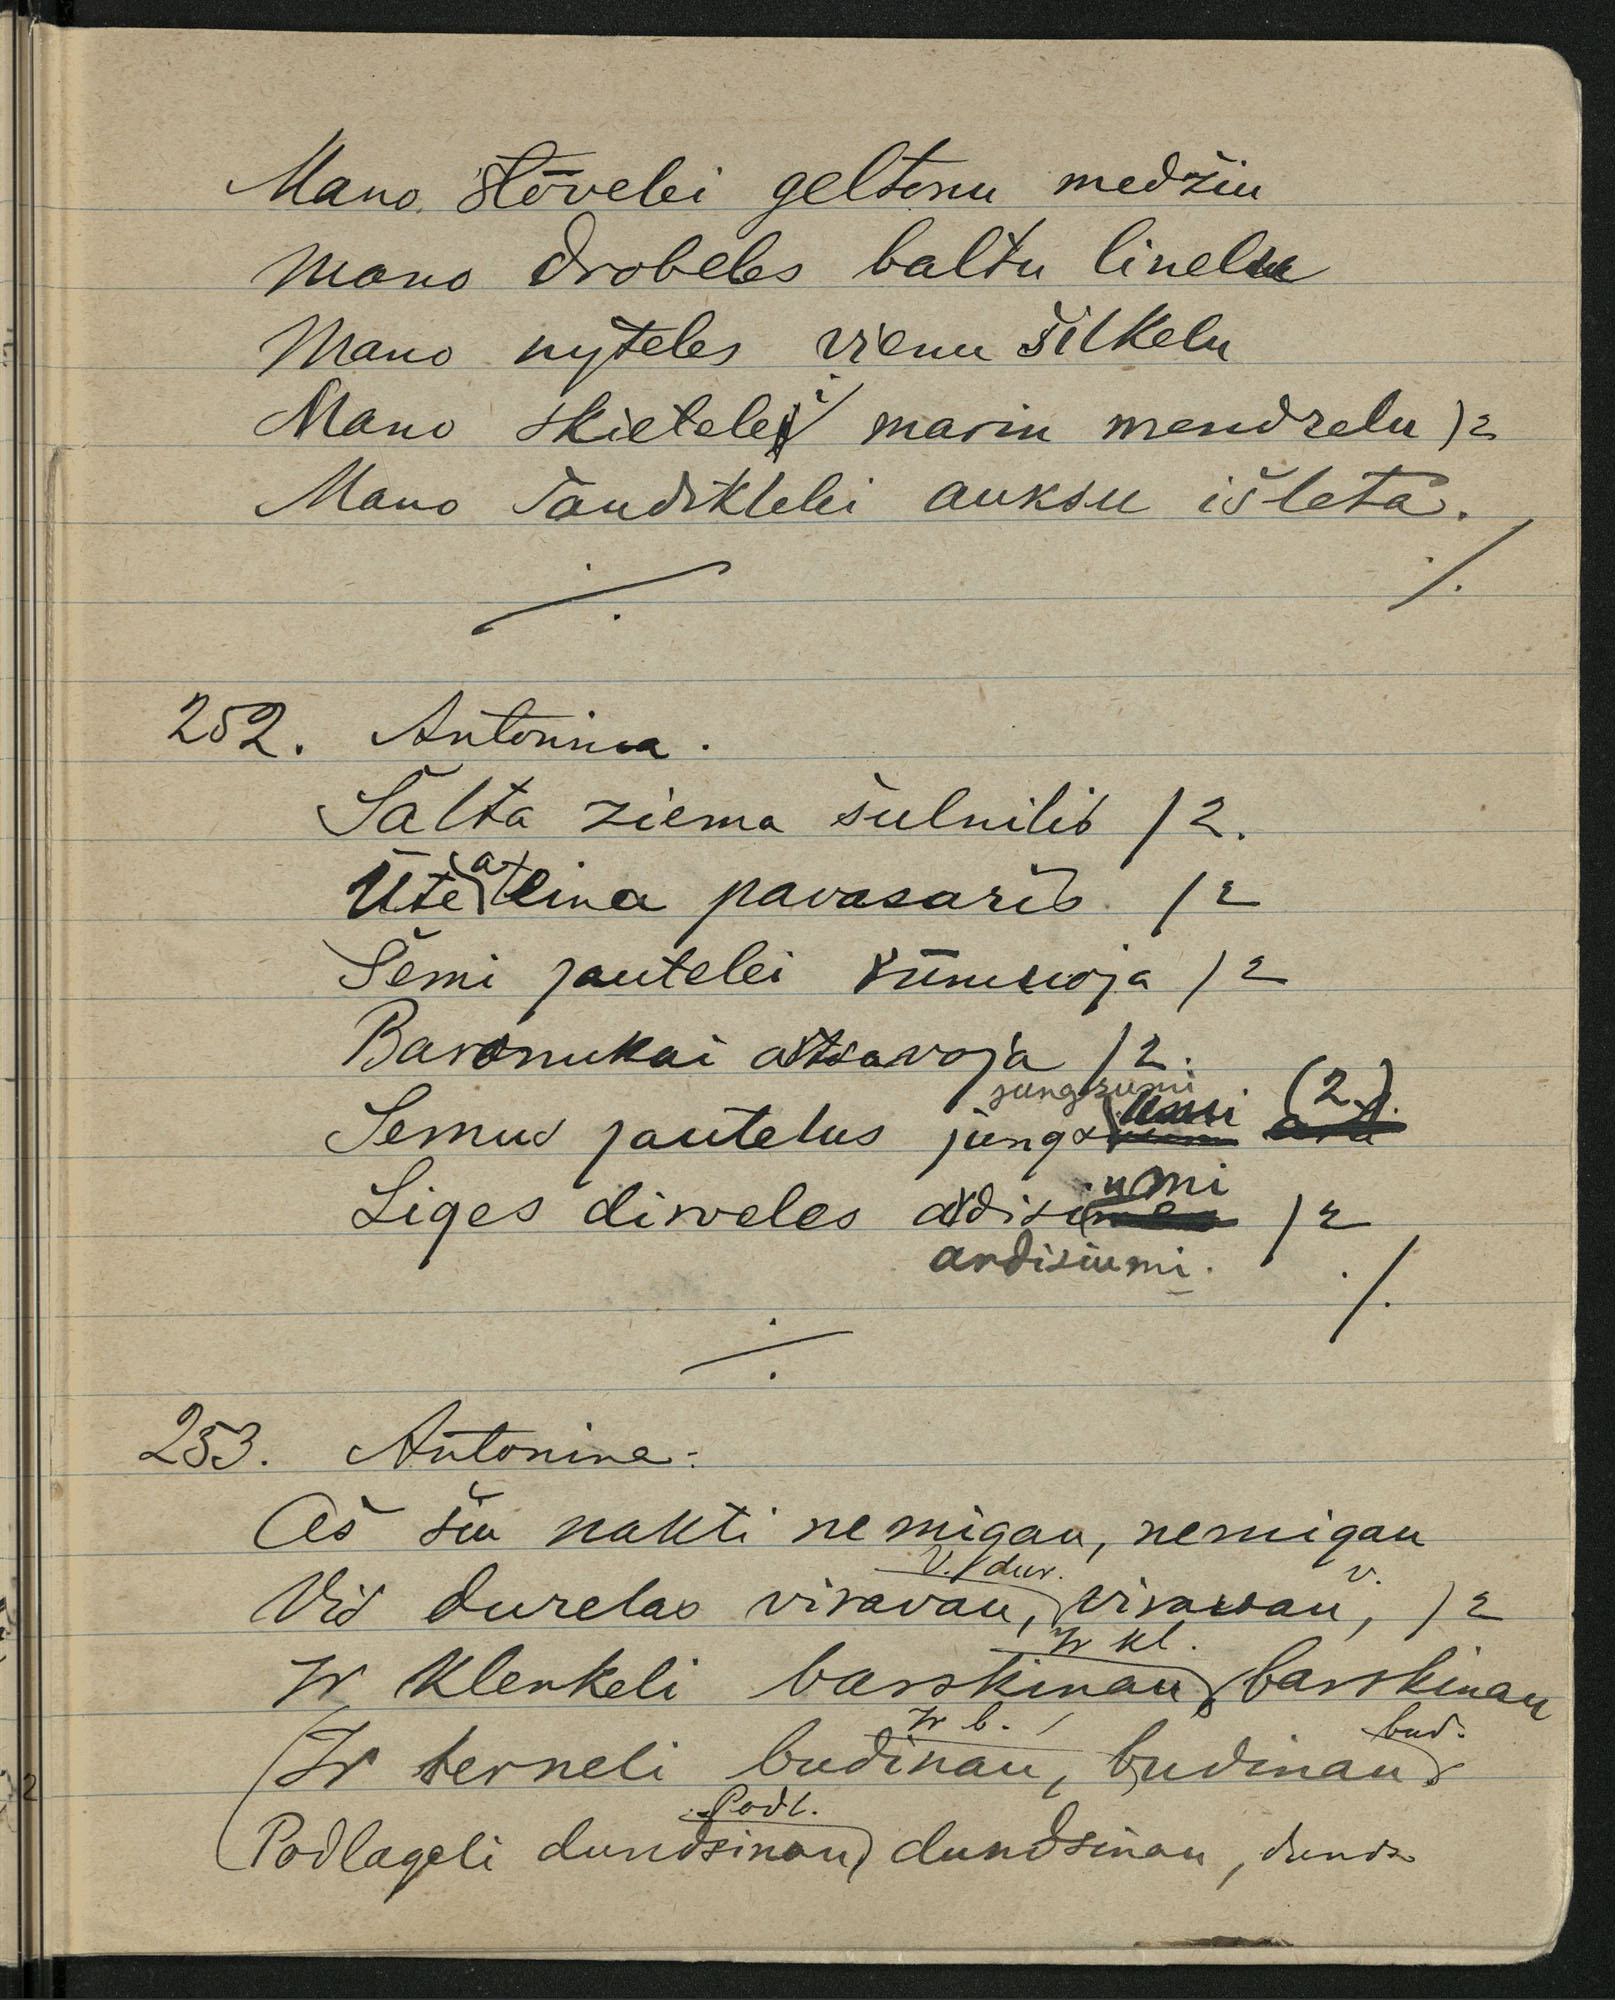 Mano stōvelei geltonu medžiu
Mano drobeles baltu linelu
Mano nyteles vienu šilkelu
Mano skietelei mariu mendrelu )2
Mano šaudiklelei auksu išleta.
252. Antonina.
Šalta ziema šulnilis /2.
Ūte ateina pavasaris /2
Šemi jautelei /2
Baronukai /2.
jungsiumi
Šemus jautelus jungs umi (2.)
Liges dirveles ardisiumi )2
ardisiumi.
253. Antonina:
Aš šiu nakti nemigau, nemigau
V. / dur. v.
Vis durelas viravau, viravau, )2
Ir kl.
Ir klenkeli barskinau, barskinau
Ir b. bud.
Ir berneli budinau, budinau
Podl.
Podlageli dundsinau, dundsinau, dunds